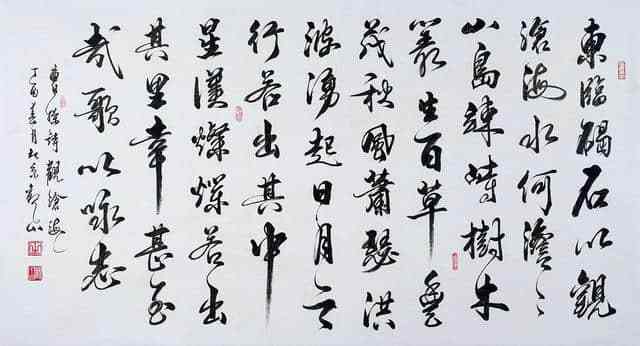 東臨碣石以觀
滄海水何澹〻
山島竦峙樹木
叢生百草豐
茂秋風蕭瑟洪
波湧起日月之
行若出其中
星漢燦爛若出
其里幸甚至
哉歌以詠志
曹操詩觀滄海
丁酉春月北京